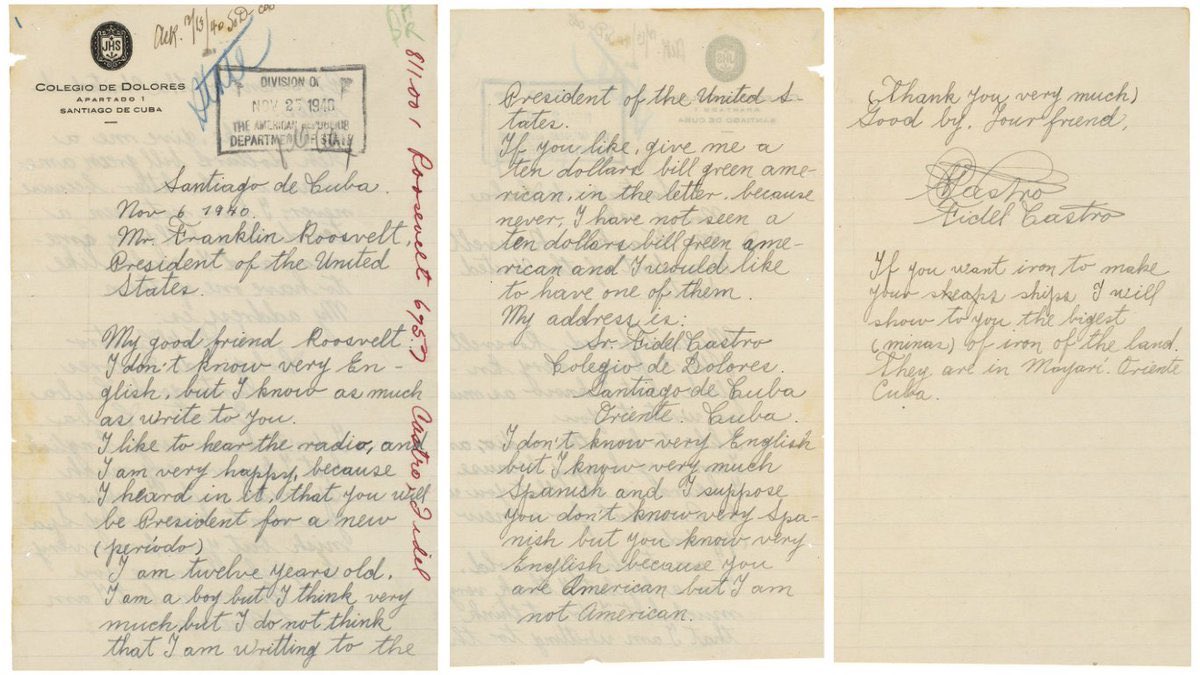 JHS
COLEGIO DE DOLORES
APARTADO 1
SANTIAGO DE CUBA
State
DIVISION OF
NOV 27 1940
THE AMERICAN REPUBLICS
DEPARTMENT OF STATE
Santiago de Cuba.
Nov 6 1940.
Mr. Franklin Roosvelt,
President of the United
States.
My good friend Roosvelt
I don't know very En-
glish, but I know as much
as write to you.
I like to hear the radio, and
I am very happy, because
I heard in it, that you will
be President for a new
(período)
I am twelve years old.
I am a boy but I think very
much but I do not think
that I am writting to the
811.001 Roosevelt
Castro, Fidel
President of the United S-
tates.
If you like, give me a
ten dollars bill green ame-
rican, in the letter, because
never, I have not seen a
ten dollars bill green ame-
rican and I would like
to have one of them.
My address is:
Sr. Fidel Castro
Colegio de Dolores.
Santiago de Cuba
Oriente. Cuba.
I don't know very English
but I know very much
Spanish and I suppose
you don't know very Spa-
nish but you know very
English because you
are American but I am
not American.
(Thank you very much)
Good by. Your friend,
Castro
Fidel Castro
If you want iron to make
your sheaps ships I will
show to you the bigest
(minas) of iron of the land.
They are in Mayarí. Oriente
Cuba.